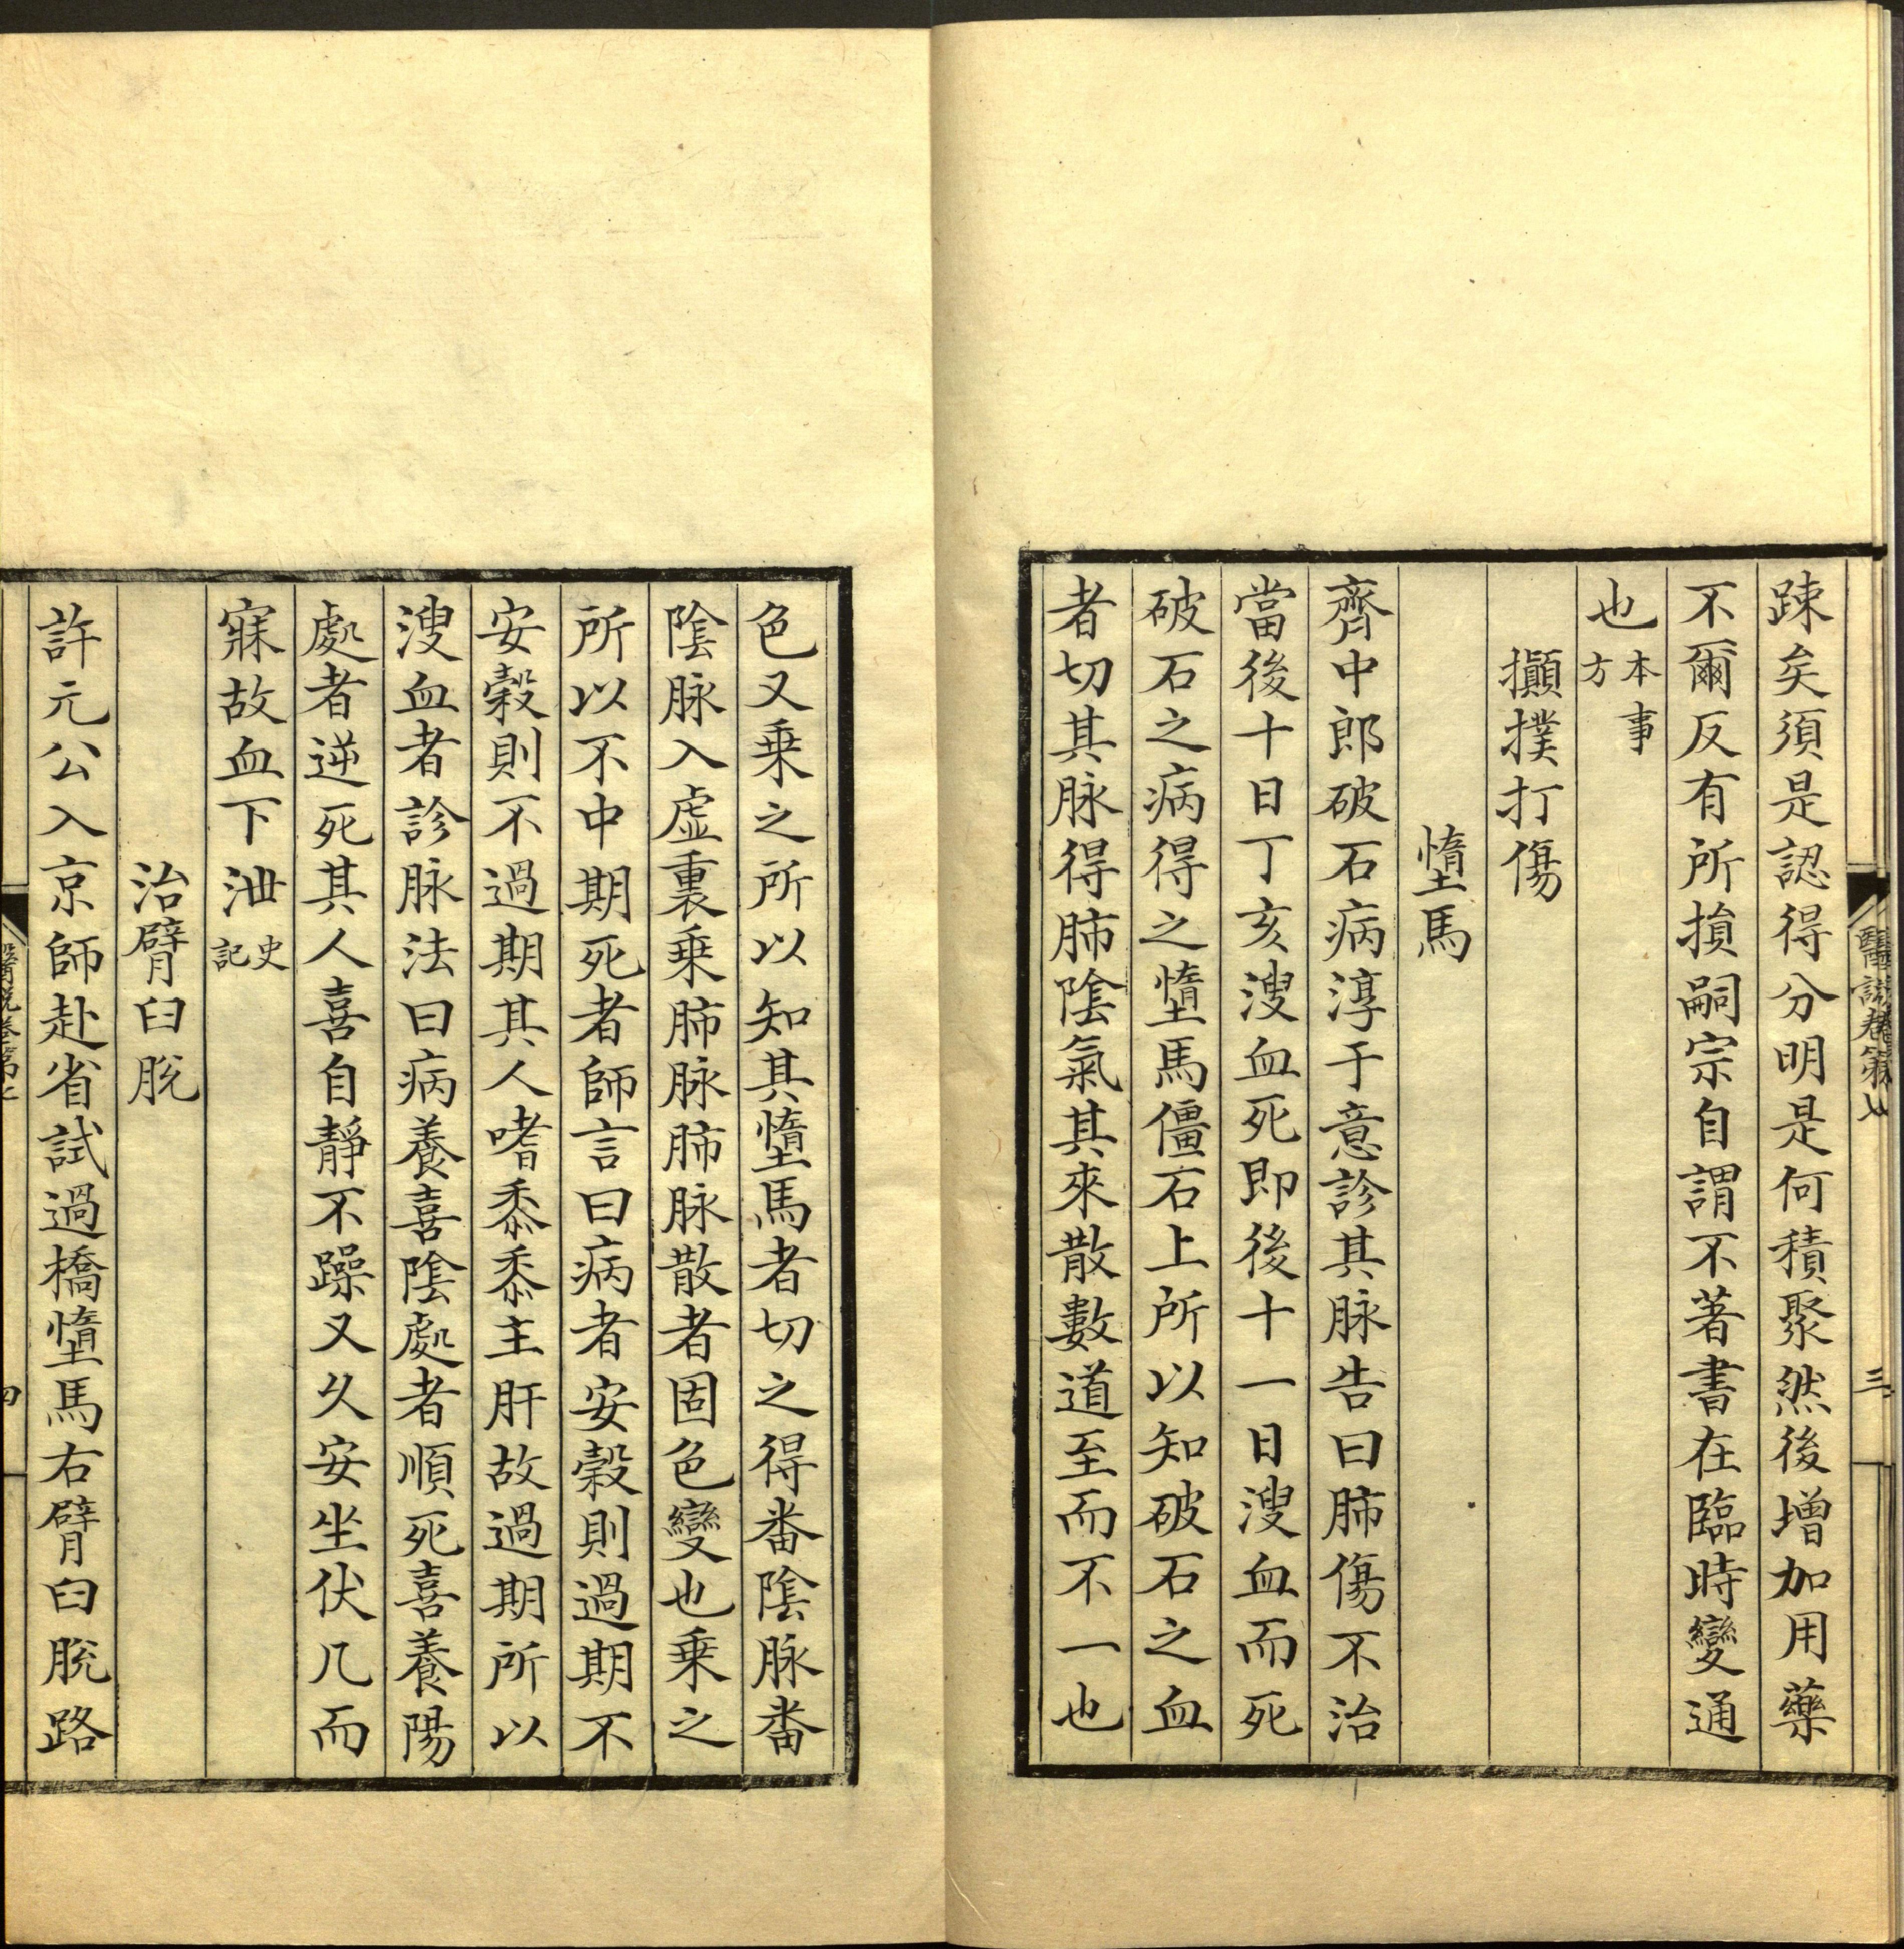 醫說卷第七
三
踈矣須是認得分明是何積聚然後增加用藥
不爾反有所損嗣宗自謂不著書在臨時變通
也本事方
攧撲打傷
墮馬
齊中郎破石病淳于意診其脉告曰肺傷不治
當後十日丁亥溲血死即後十一日溲血而死
破石之病得之墮馬僵石上所以知破石之血
者切其脉得肺陰氣其來散數道至而不一也
色又乗之所以知其墮馬者切之得番陰脉番
陰脉入虛裏乗肺脉肺脉散者固色變也乗之
所以不中期死者師言曰病者安穀則過期不
安穀則不過期其人嗜黍黍主肝故過期所以
溲血者診脉法曰病養喜陰處者順死喜養陽
處者逆死其人喜自靜不躁又久安坐伏几而
寐故血下泄史記
治臂臼脫
許元公入京師赴省試過橋墮馬右臂臼脫路
醫說卷第七
四